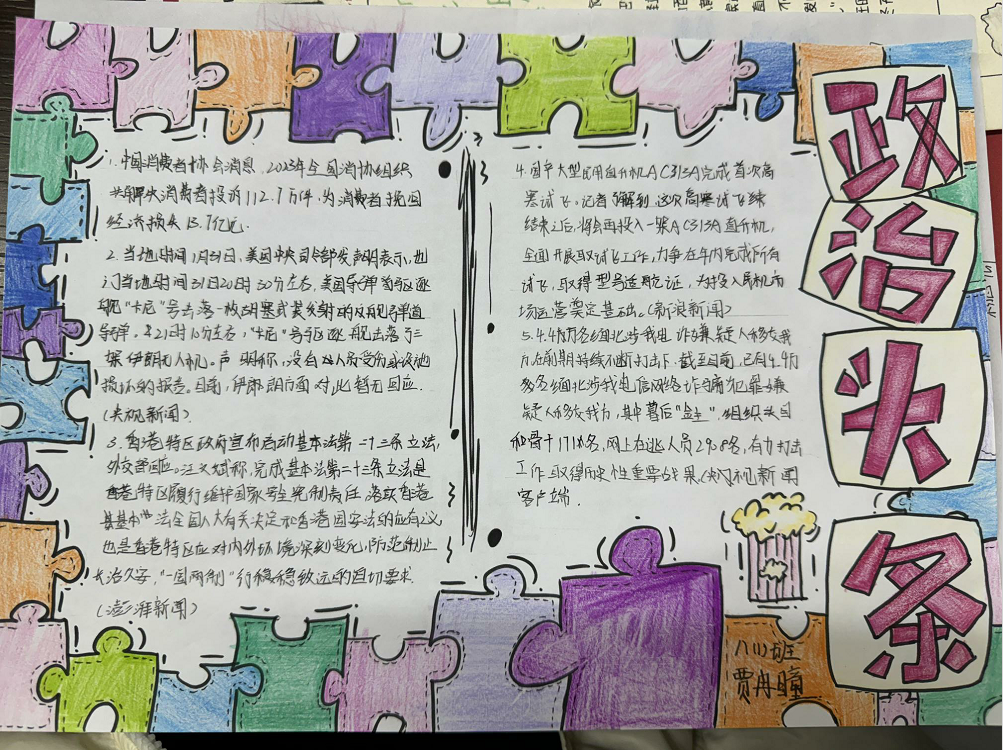 政治头条
1. 中国消费者协会消息, 2023年全国消协组织
共解决消费者投诉112.7万件, 为消费者挽回
经济损失13.7亿元.
2. 当地时间1月31日, 美国中央司令部发声明表示, 也
门当地时间31日20时30分左右, 美国导弹驱逐
舰“卡尼”号击落一枚胡塞武装发射的反舰弹道
导弹. 21时10分左右, “卡尼”号驱逐舰击落了三
架伊朗无人机。声明称, 没有人员受伤或设施
损坏的报告. 目前, 伊朗方面对此暂无回应.
(央视新闻)
3. 香港特区政府宣布启动基本法第二十三条立法,
外交部回应。汪文斌称, 完成基本法第二十三条立法是
香港特区履行维护国家安全宪制责任, 落实香港
基本法全国人大有关决定和香港国安法的应有义,
也是香港特区应对内外环境深刻变化, 防范制止
长治久安, “一国两制”行稳致远的迫切要求.
(澎湃新闻)
4. 国产大型民用直升机AC313A完成首次高
寒试飞。记者了解到, 这次高寒试飞结
结束之后, 将会再投入一架AC313A直升机,
全面开展取证试飞工作, 力争在年内完成所有
试飞, 取得型号适航证, 为投入民机市
场运营奠定基础。(新浪新闻)
5. 4.4万名缅北涉我电诈嫌疑人移交我
方. 在前期持续不断打击下, 截至目前, 已有4.4万
多名缅北涉我电信网络诈骗犯罪嫌
疑人移交我方, 其中幕后“金主”, 组织头目
和骨干171名, 网上在逃人员2908名, 有力打击
工作取得历史性重要战果, (央视新闻
客户端.
八(1)班
贾冉瞳